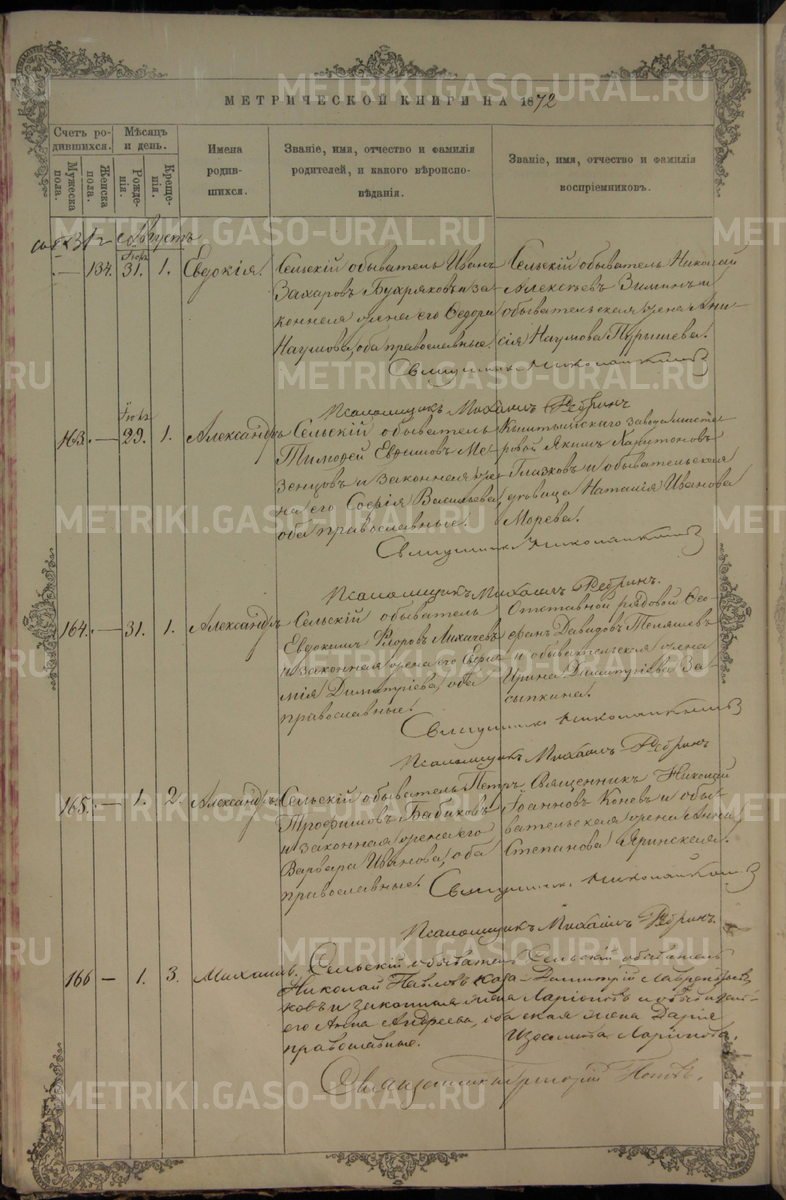 METRIKI.GASO-URAL.RU
МЕТРИЧЕСКОЙ КНИГИ НА 1872
Счетъ ро-
дившихся.
Мужеска
пола.
Женска
пола.
Мѣсяцъ
и день.
Рожде-
нія.
Креще-
нія.
Имена
родив-
шихся.
Званіе, имя, отчество и фамилія
родителей, и какого вѣроиспо-
вѣданія.
Званіе, имя, отчество и фамилія
воспріемниковъ.
Августъ
134. 31. 1. Евдокія.
Сельскій обыватель Иванъ
Захаровъ Бухряковъ и за-
конная жена его Ѳедора
Наумова, оба православные.
Сельскій обыватель Николай
Алексѣевъ Зиминъ и
обывательская жена Ани-
сія Наумова Пурышева.
Священникъ
Псаломщикъ Михаилъ Ребринъ
163. — 29. 1. Александръ
Сельскій обыватель
Тимоѳей Евѳимовъ Ме-
зенцовъ и законная же-
на его Софія Васильева,
оба православные.
завода мастеровой Якимъ Харитоновъ
Глазковъ и обывательская
вдовица Наталія Иванова
Морева.
Священникъ
Псаломщикъ Михаилъ Ребринъ.
164. — 31. 1. Александръ
Сельскій обыватель
Евдокимъ Флоровъ Лихачевъ
и законная жена его Евфи-
мія Димитріева, оба
православные.
Отставной рядовой Сте-
фанъ Давидовъ
и обывательская жена
Ирина Димитріева За-
сыпкина.
Священникъ
Псаломщикъ Михаилъ Ребринъ
165. — 1. 2. Александръ.
Сельскій обыватель Петръ
Трофимовъ Бабиковъ
и законная жена его
Варвара Иванова, оба
православные.
Священникъ Николай
Іоанновъ Коневъ и обы-
вательская жена Анна
Степанова Яринская.
Священникъ
Псаломщикъ Михаилъ Ребринъ.
166 — 1. 3. Михаилъ.
Сельскій обыватель
Николай Павловъ Каза-
ковъ и законная жена
его Анна Андреева, оба
православные.
Сельскій обыватель
Димитрій Лаврентьевъ
Ларіоновъ и обыватель-
ская жена Дарія
Ларіонова.
Священникъ Григорій Поповъ.